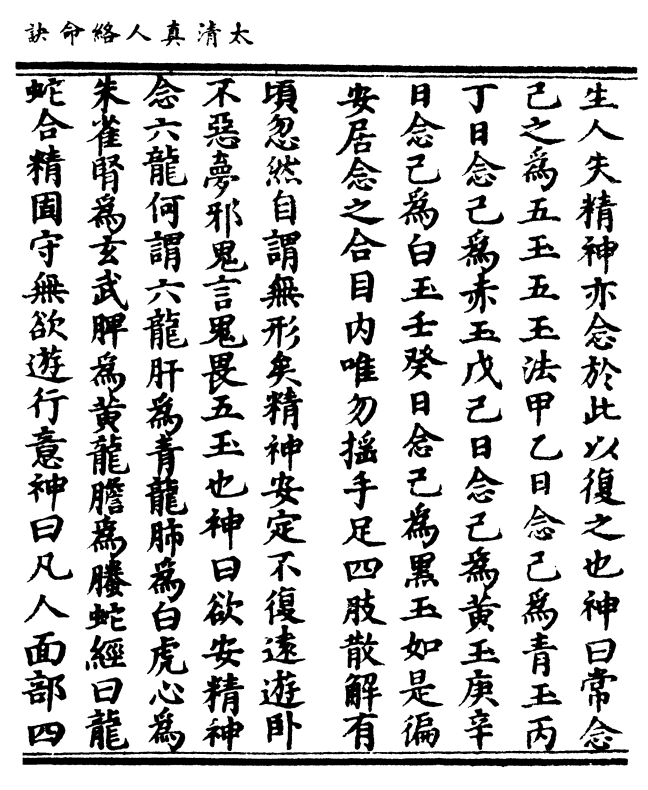 太清真人絡命訣
生人失精神亦念於此以復之也神曰常念
己之爲五玉五玉法甲乙日念己爲青玉丙
丁日念己爲赤玉戊己日念己爲黃玉庚辛
日念己爲白玉壬癸日念己爲黑玉如是徧
安居念之合目內唯勿揺手足四肢散解有
頃忽然自謂無形矣精神安定不復遠遊卧
不惡夢邪鬼言鬼畏五玉也神曰欲安精神
念六龍何謂六龍肝爲青龍肺爲白虎心爲
朱雀腎爲玄武脾爲黃龍膽爲螣蛇經曰龍
蛇合精固守無欲遊行意神曰凡人面部四